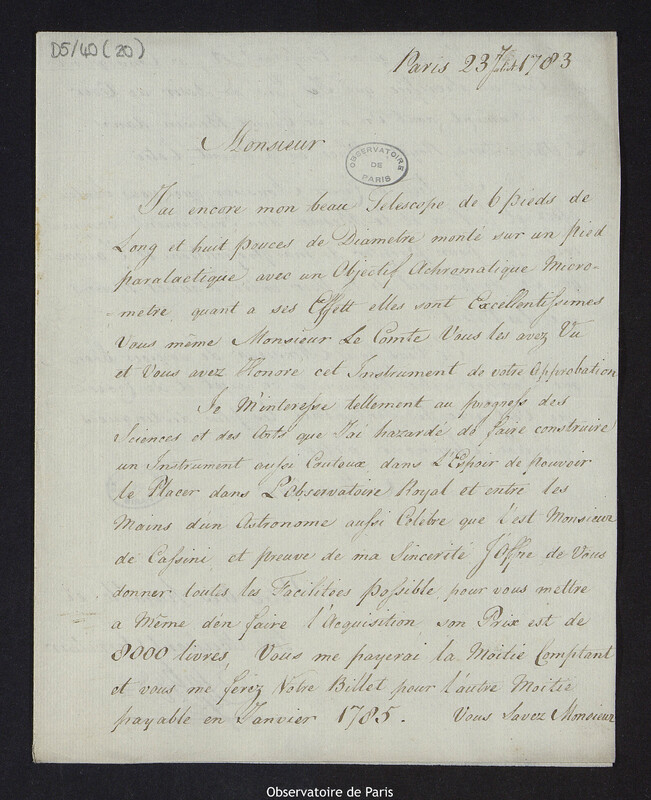 D5/40 (20)
Paris 23 7bre 1783
Monsieur
OBSERVATOIRE
DE
PARIS
J'ai encore mon beau Telescope de 6 pieds de
Long et huit pouces de Diametre monté sur un pied
paralactique avec un Objectif Achromatique Micro-
-metre, quant a ses Effett elles sont Excellentissimes
Vous même Monsieur Le Comte Vous les avez Vu
et Vous avez Honoré cet Instrument de votre Approbation
Je M'interesse tellement au progress des
Sciences et des Arts que J'ai hazardé de faire construire
un Instrument aussi Coutoux, dans L'Espoir de pouvoir
le Placer dans L'Observatoire Royal et entre les
Mains d'un Astronome aussi Célèbre que l'est Monsieur
de Cassini, et preuve de ma Sincerité J'Offre de Vous
donner toutes les Facilitées possible, pour vous mettre
a Même d'en faire l'Acquisition son Prix est de
8000 livres, Vous me payerai la Moitie Comptant
et vous me ferez Votre Billet pour l'autre Moitie
payable en Janvier 1785. Vous Savez Monsieur
Observatoire de Paris